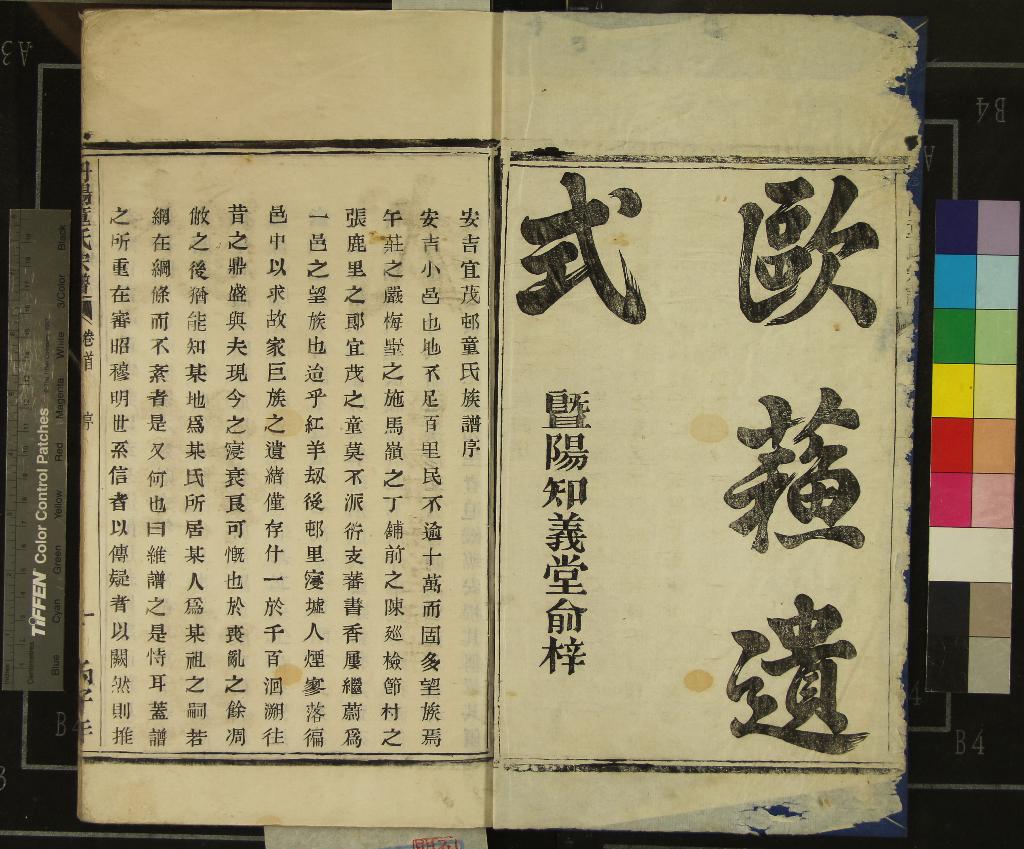 歐蘓遺
式
暨陽知義堂俞梓
安吉宜茂邨童氏族譜序
安吉小邑也地不足百里民不逾十萬而固多望族焉
午莊之嚴梅墅之施馬嶺之丁鋪前之陳廵檢節村之
張鹿里之郎宜茂之童莫不派衍支蕃書香屢繼蔚為
一邑之望族也迨乎紅羊刼後邨里寖墟人煙寥落徧
邑中以求故家巨族之遺緒僅存什一於千百洄溯徃
昔之鼎盛與夫現今之寖衰良可慨也於喪亂之餘凋
敝之後猶能知某地爲某氏所居某人爲某祖之嗣若
綱在綱條而不紊者是又何也曰維譜之是恃耳蓋譜
之所重在審昭穆明世系信者以傳疑者以闕然則推
丹陽童氏宗譜
卷首
序
一
丙子年
TIFFEN Color Control Patches
Blue Cyan Green Yellow Red Magenta White 3/Color Black
Inches
Centimetres
A3
B4
A
B4
B4
4
B